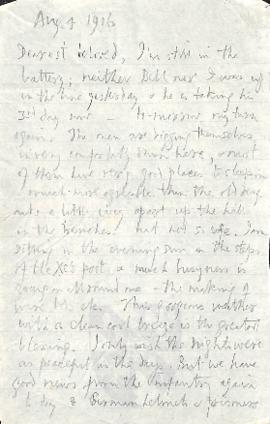 Aug. 4 1916
Dearest beloved, I'm still in the
battery; neither Bell nor I was up
in the line yesterday & he is taking his
3rd day now – to-morrow my turn
again. The men are digging themselves
in very comfortably down here, & most
of them have very good places to sleep in
– much more agreeable than the old dug
outs a little way apart up the hill
in the trenches. but not so safe. I am
sitting in the evening sun on the steps
of the post & much busyness is
going on all round me – the making of
wire &c. This gorgeous weather
with a clear cool breeze is the greatest
blessing. I only wish the nights were
as peaceful as the days. But we have
good news from the infantry again
to day & German prisoners